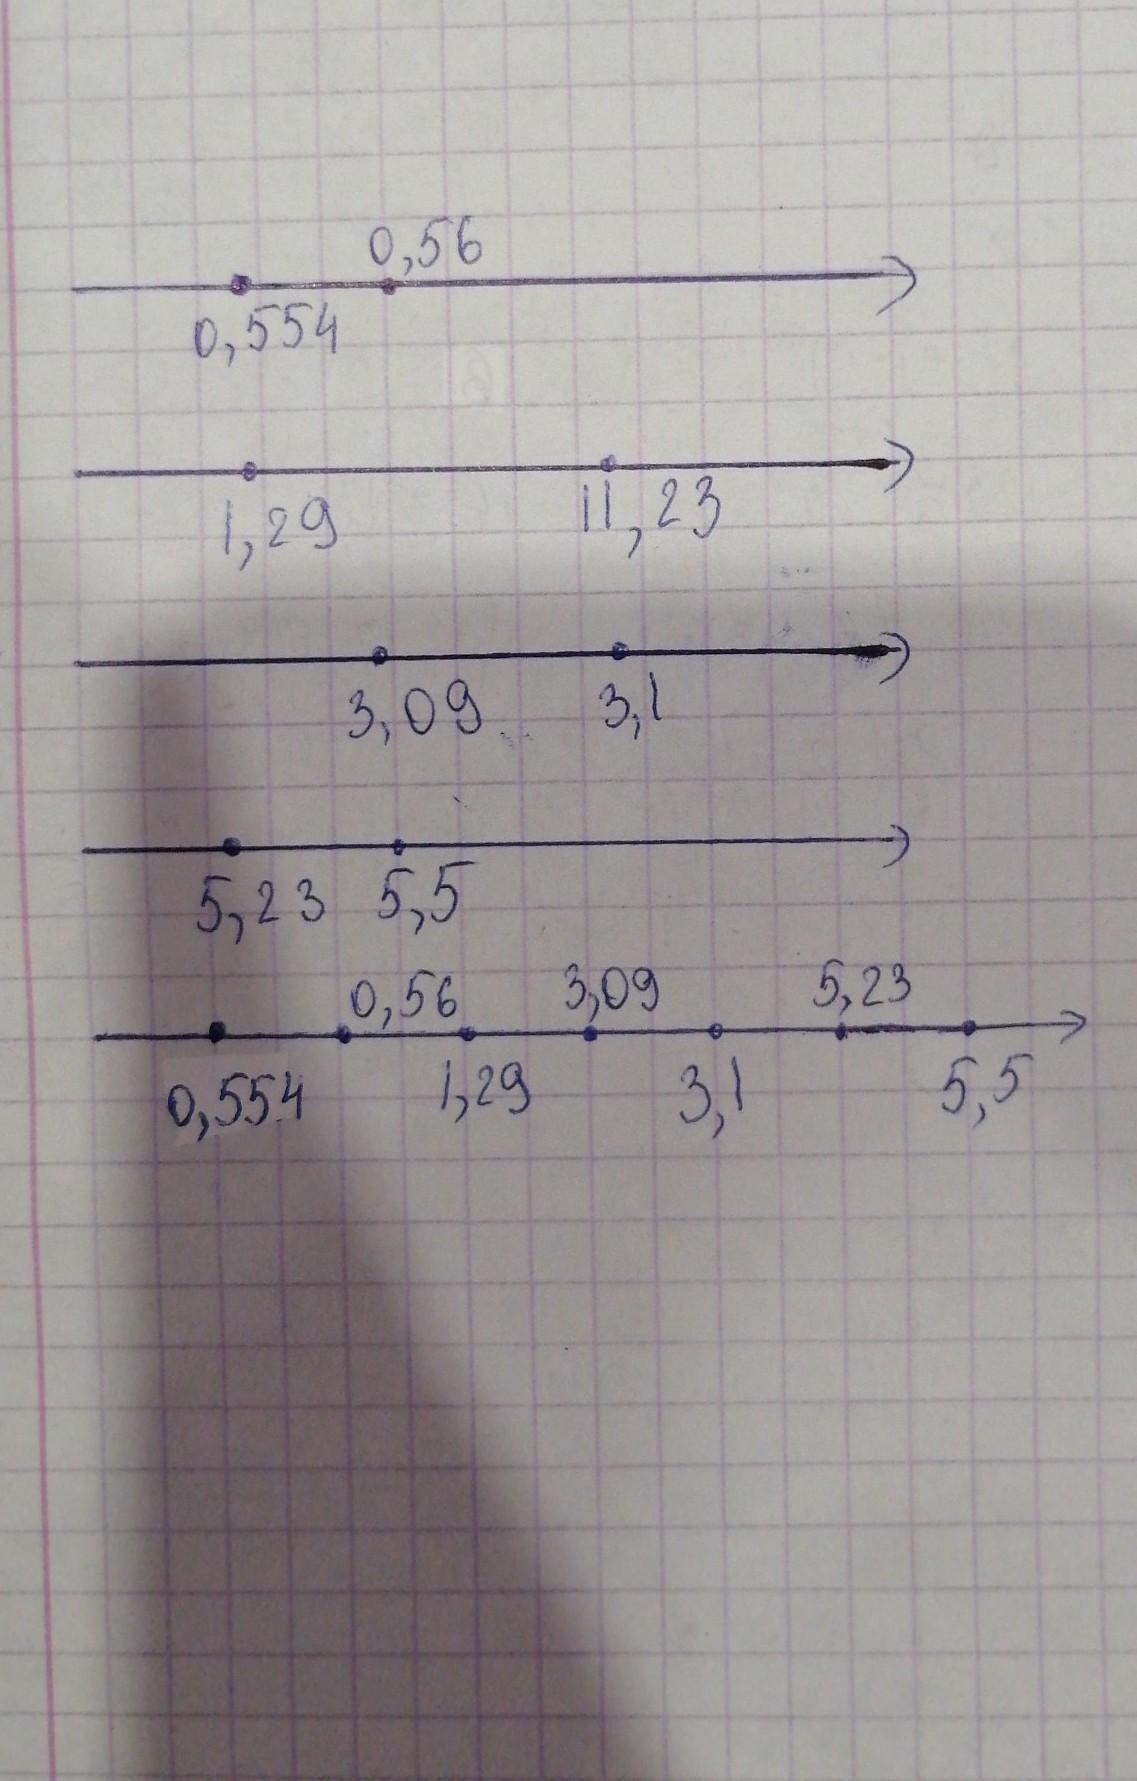 0,56
0,554
1,29 11,23
3,09 3,1
5,23 5,5
0,56 3,09 5,23
0,554 1,29 3,1 5,5